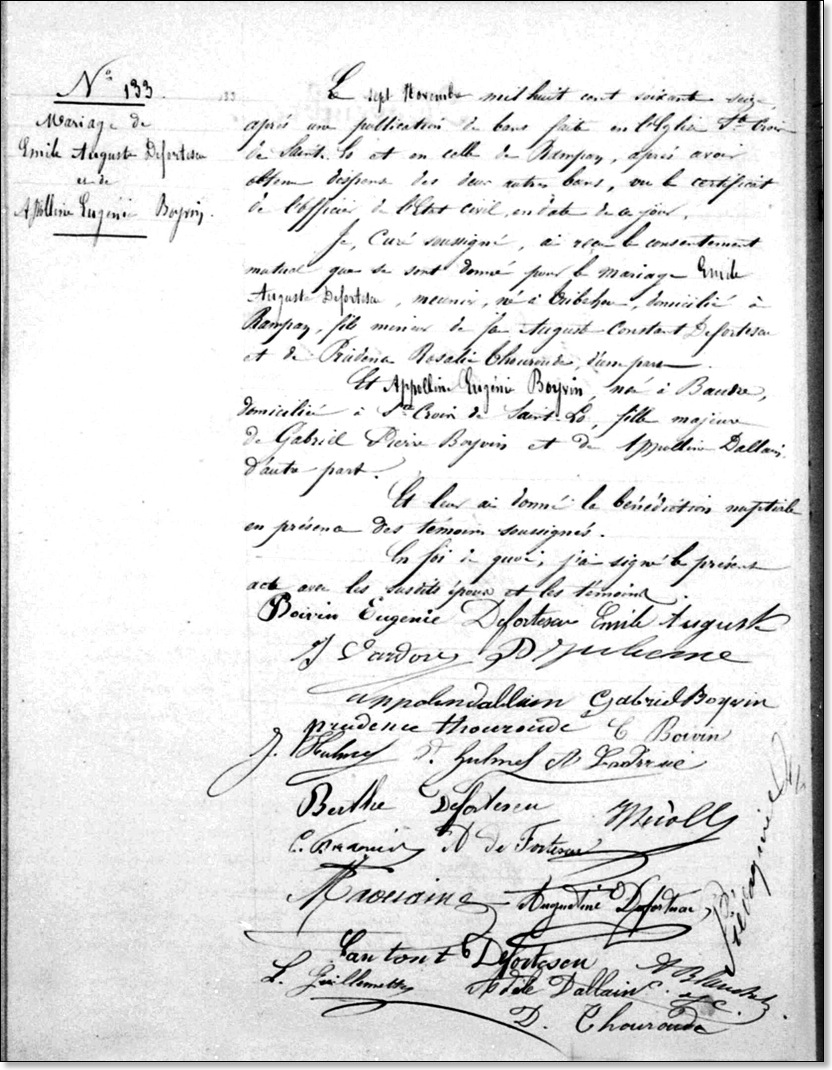 N° 133.
Mariage de
Emile Auguste Defortescu
et de
Appolline Eugénie Boyvin.
133
Le sept Novembre mil huit cent soixante seize,
après une publication de bans faite en l'Eglise Ste Croix
de Saint-Lo et en celle de Rampan, après avoir
obtenu dispense des deux autres bans, vu le certificat
de l'officier de l'Etat civil, en date de ce jour,
Je, Curé soussigné, ai reçu le consentement
mutuel que se sont donné pour le mariage Emile
Auguste Defortescu, meunier, né à Tribehou, domicilié à
Rampan, fils mineur de feu Auguste Constant Defortescu
et de Prudence Rosalie Thouroude, d'une part
Et Appolline Eugénie Boyvin, née à Baudre,
domiciliée à Ste Croix de Saint-Lô, fille majeure
de Gabriel Pierre Boyvin et de Appolline Dallain,
d'autre part.
Et leur ai donné la bénédiction nuptiale
en présence des témoins soussignés.
En foi de quoi, j'ai signé le présent
acte avec les susdits époux et les témoins.
Boivin Eugenie Defortescu Emile Auguste
appolin dallain Gabriel Boyvin
prudence thouroude E Boivin
Berthe Defortescu
A de Fortescu
Augustine Defortescu
Defortescu
L. Guillemette Adèle Dallain
D. Thouroude